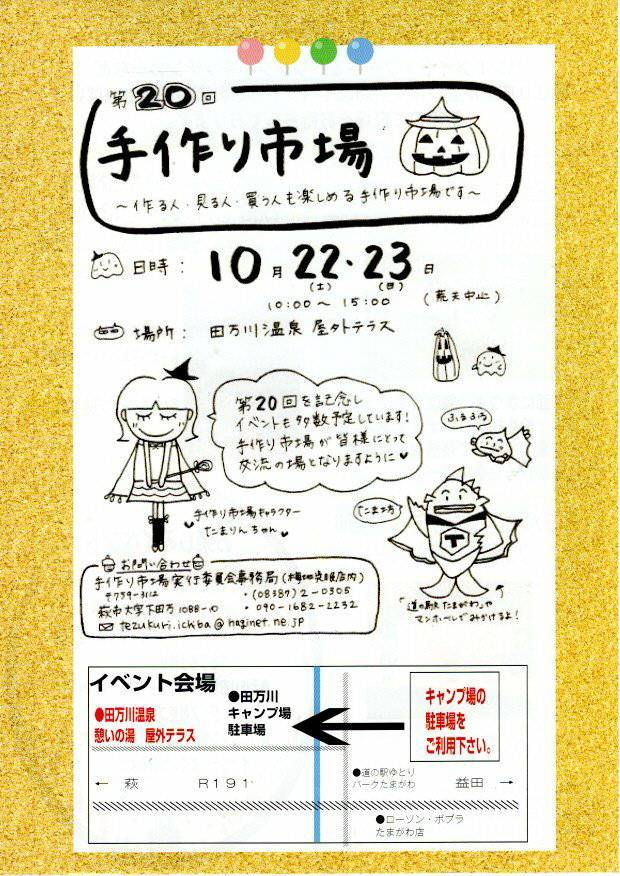 第20回
手作り市場
～作る人・見る人・買う人も楽しめる手作り市場です～
日時：10月22・23日
(土) (日)
10:00～15:00 (荒天中止)
場所：田万川温泉 屋外テラス
第20回を記念し
イベントも多数予定しています!
手作り市場が皆様にとって
交流の場となりますように♥
手作り市場キャラクター
たまりんちゃん
たこま坊
T
「道の駅たまがわ」や
マンホールでみかけるよ!
お問い合わせ
手作り市場実行委員会事務局(梅地呉服店内)
〒759-3112 ・(08387)2-0305
萩市大字下田万1088-10 ・090-1682-2232
✉ tezukuri.ichiba@haginet.ne.jp
イベント会場
●田万川温泉
憩いの湯 屋外テラス
●田万川
キャンプ場
駐車場
キャンプ場の
駐車場を
ご利用下さい。
← 萩 R191
●道の駅ゆとり
パークたまがわ
益田 →
●ローソン・ポプラ
たまがわ店